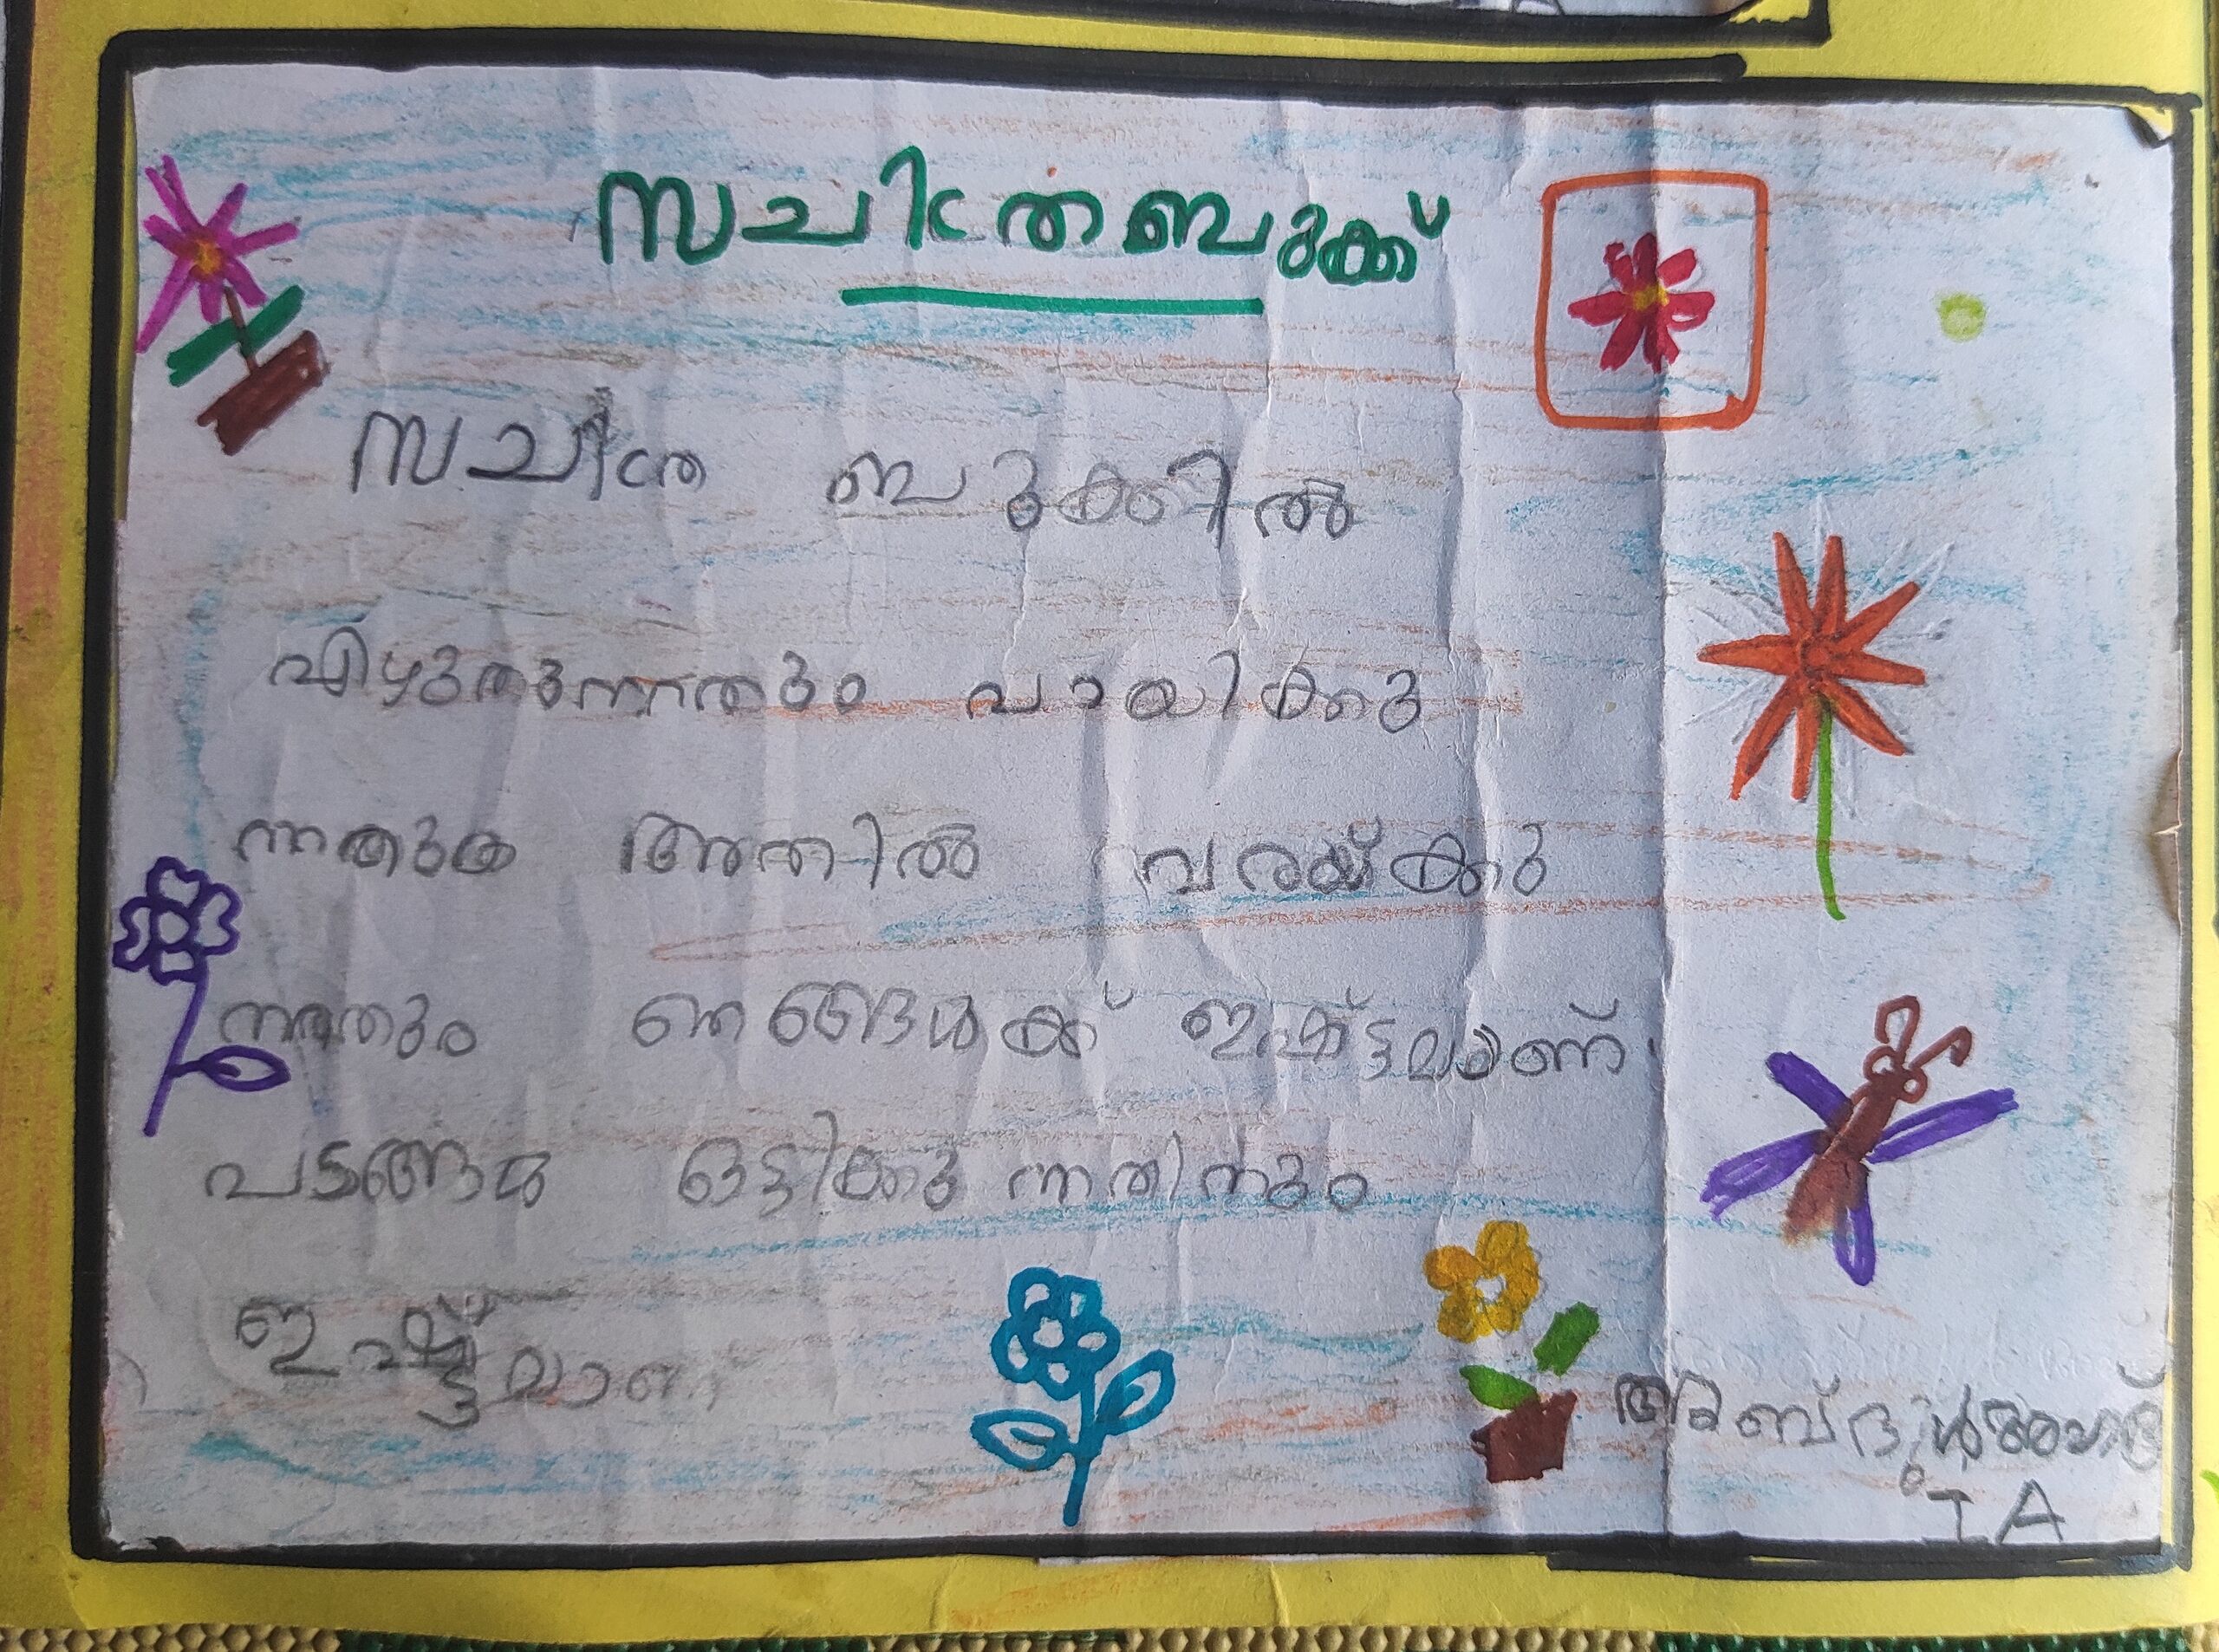 സചിത്രബുക്ക്
സചിത്ര ബുക്കിൽ
എഴുതുന്നതും വായിക്കു
ന്നതും അതിൽ വരയ്ക്കു
ന്നതും ഞങ്ങൾക്ക് ഇഷ്ട്ടമാണ്
പടങ്ങൾ ഒട്ടിക്കു ന്നതിനും
ഇഷ്ട്ടമാണ
I A